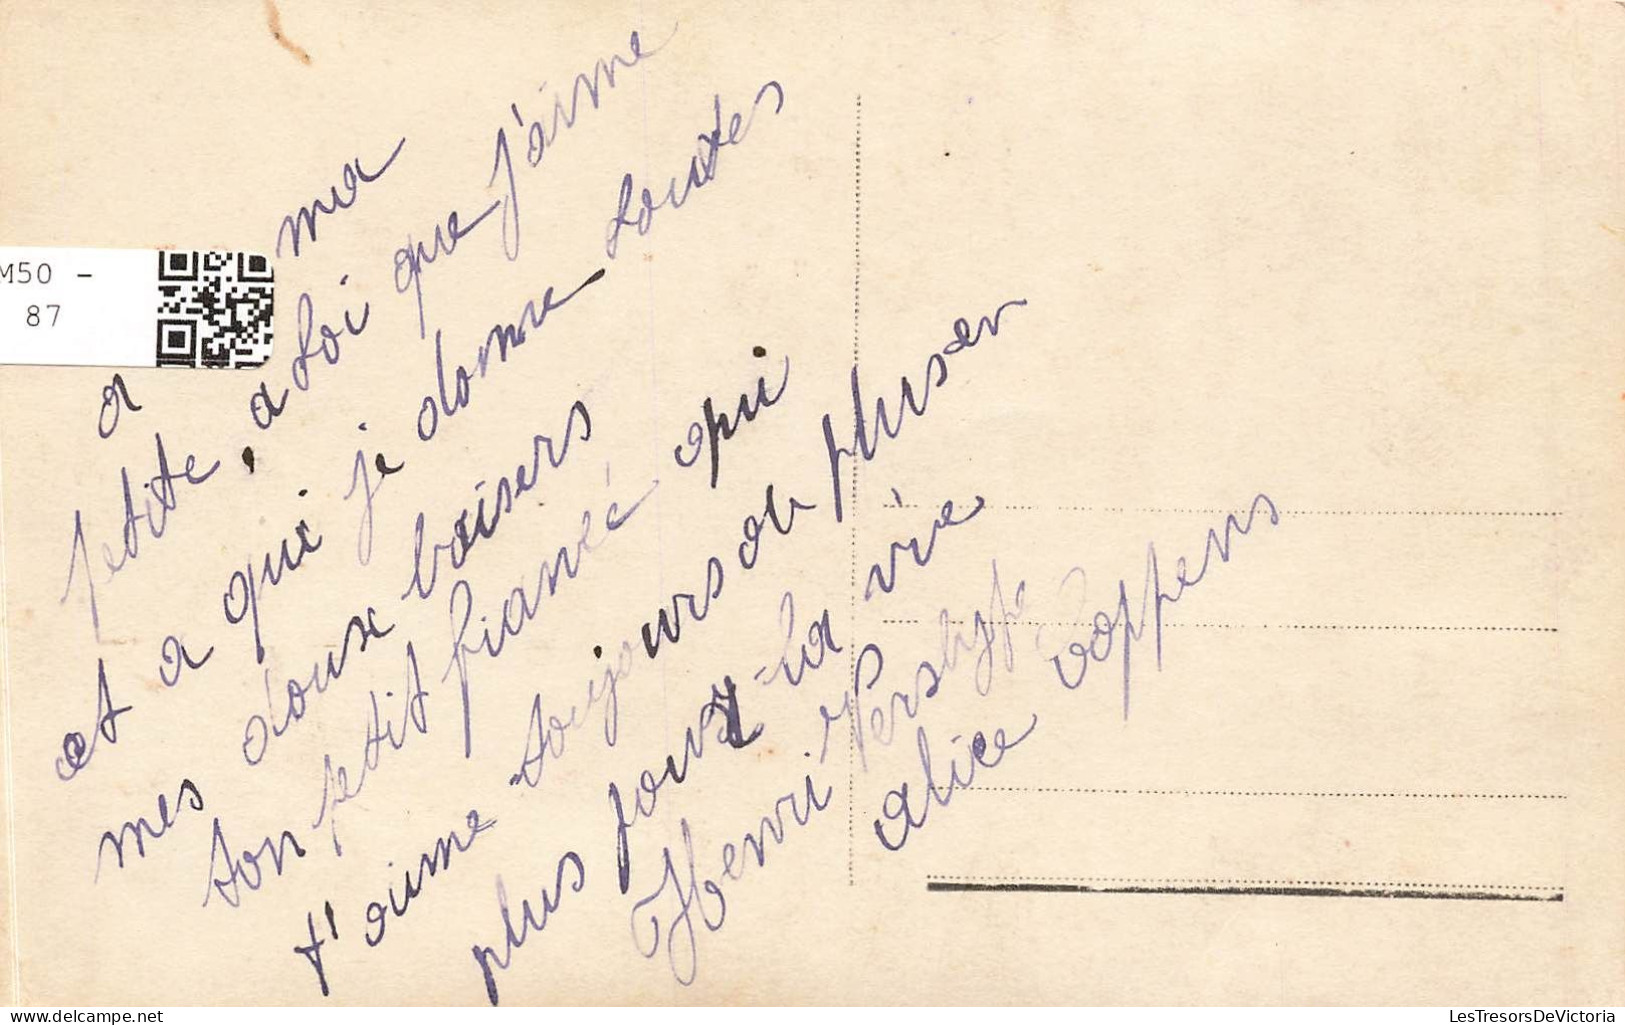 M50 -
87
a ma
petite, a toi que j'aime
et a qui je donne toutes
mes doux baisers
ton petit fiancé qui
t'aime toujours de plus en
plus pour la vie
Henri Vershype
alice Coppens
LesTresorsDeVictoria
LesTresorsDeVictoria.com